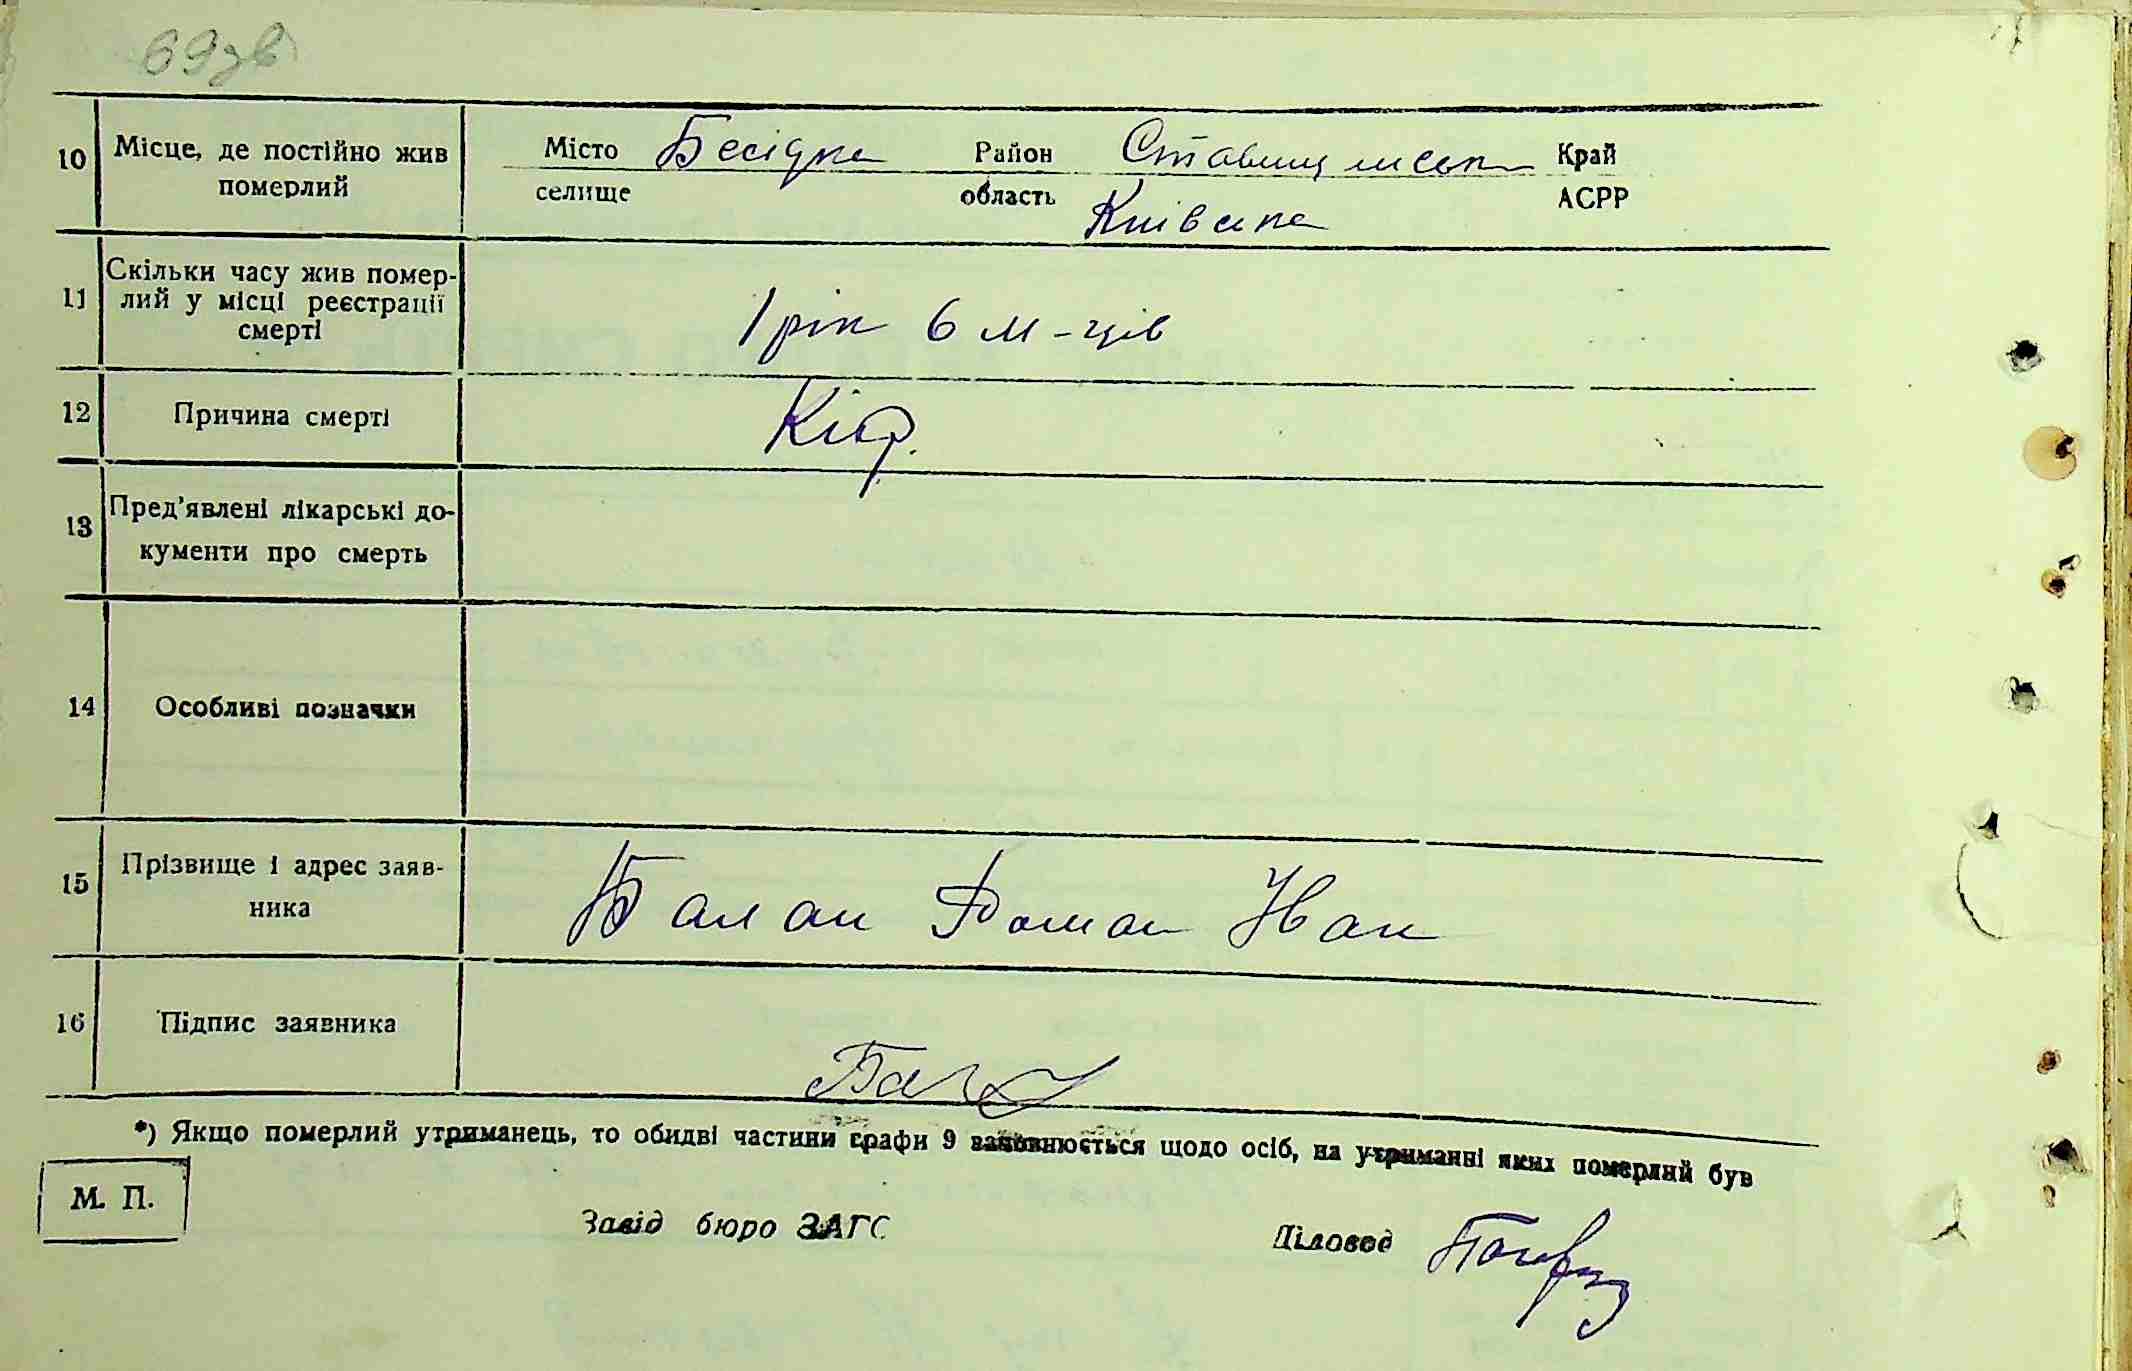 69зв
10 Місце, де постійно жив померлий
Місто Бесідка Район Ставищанськ Край
селище область Київська АСРР
11 Скільки часу жив помер-
лий у місці реєстрації
смерті
1 рік 6 м-ців
12 Причина смерті
Кір.
13 Пред'явлені лікарські до-
кументи про смерть
14 Особливі позначки
15 Прізвище і адрес заяв-
ника
Балан Роман Іван
16 Підпис заявника
*) Якщо померлий утриманець, то обидві частини графи 9 заповнюється щодо осіб, на утриманні яких померлий був
М. П.
Завід бюро ЗАГС Діловод